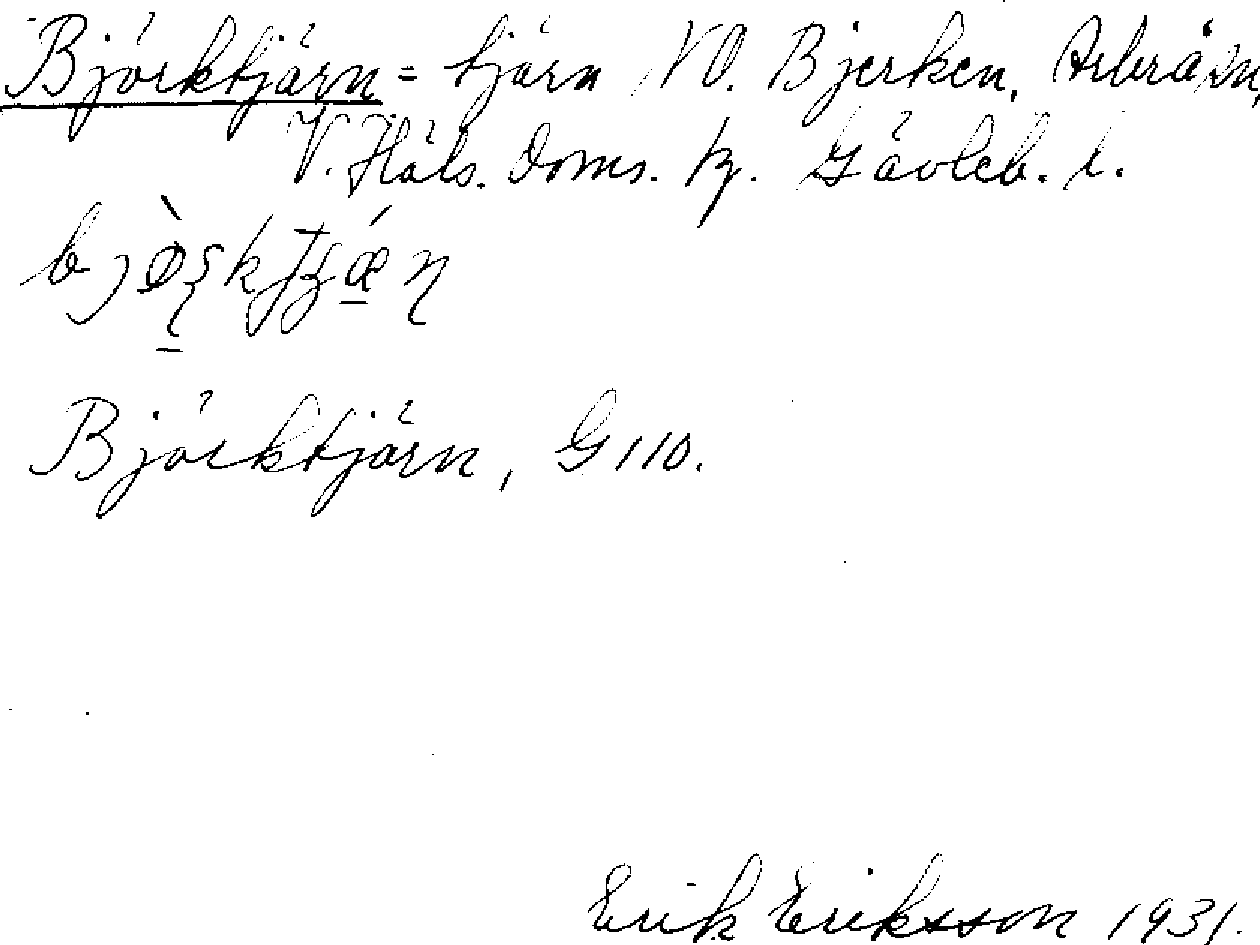 Björktjärn = tjärn NO. Bjerken, Arbrå sn,
V. Häls. doms. tg. Gävleb. l.
Björktjärn, G110.
Erik Eriksson 1931.